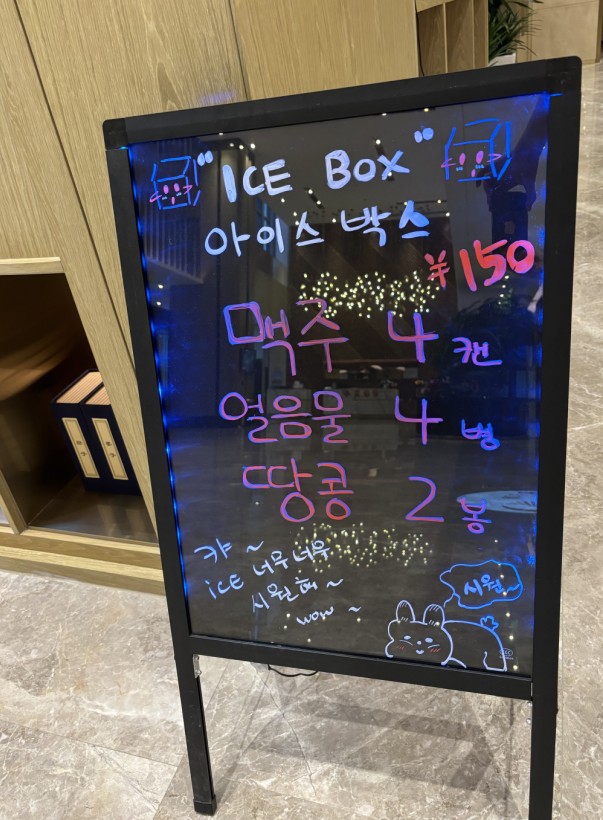 "ICE BOX"
아이스 박스
¥150
맥주 4 캔
얼음물 4 병
땅콩 2 봉
캬~
ICE 너무너무
시원해~
wow~
시원~